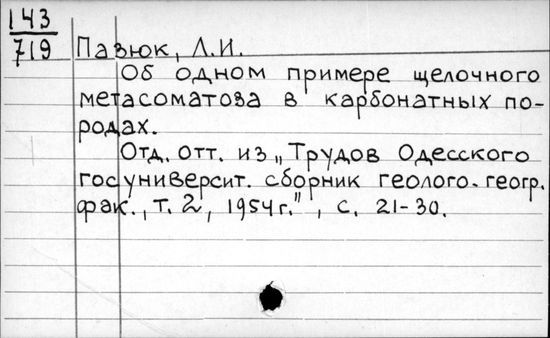 143
719
Пазюк, Л.И.
Об одном примере щелочного
метасоматоза в карбонатных по-
родах.
Отд. отт. из „Трудов Одесского
госуниверсит. сборник геолого-геогр.
фак., т. 2, 1954г.", с. 21-30.